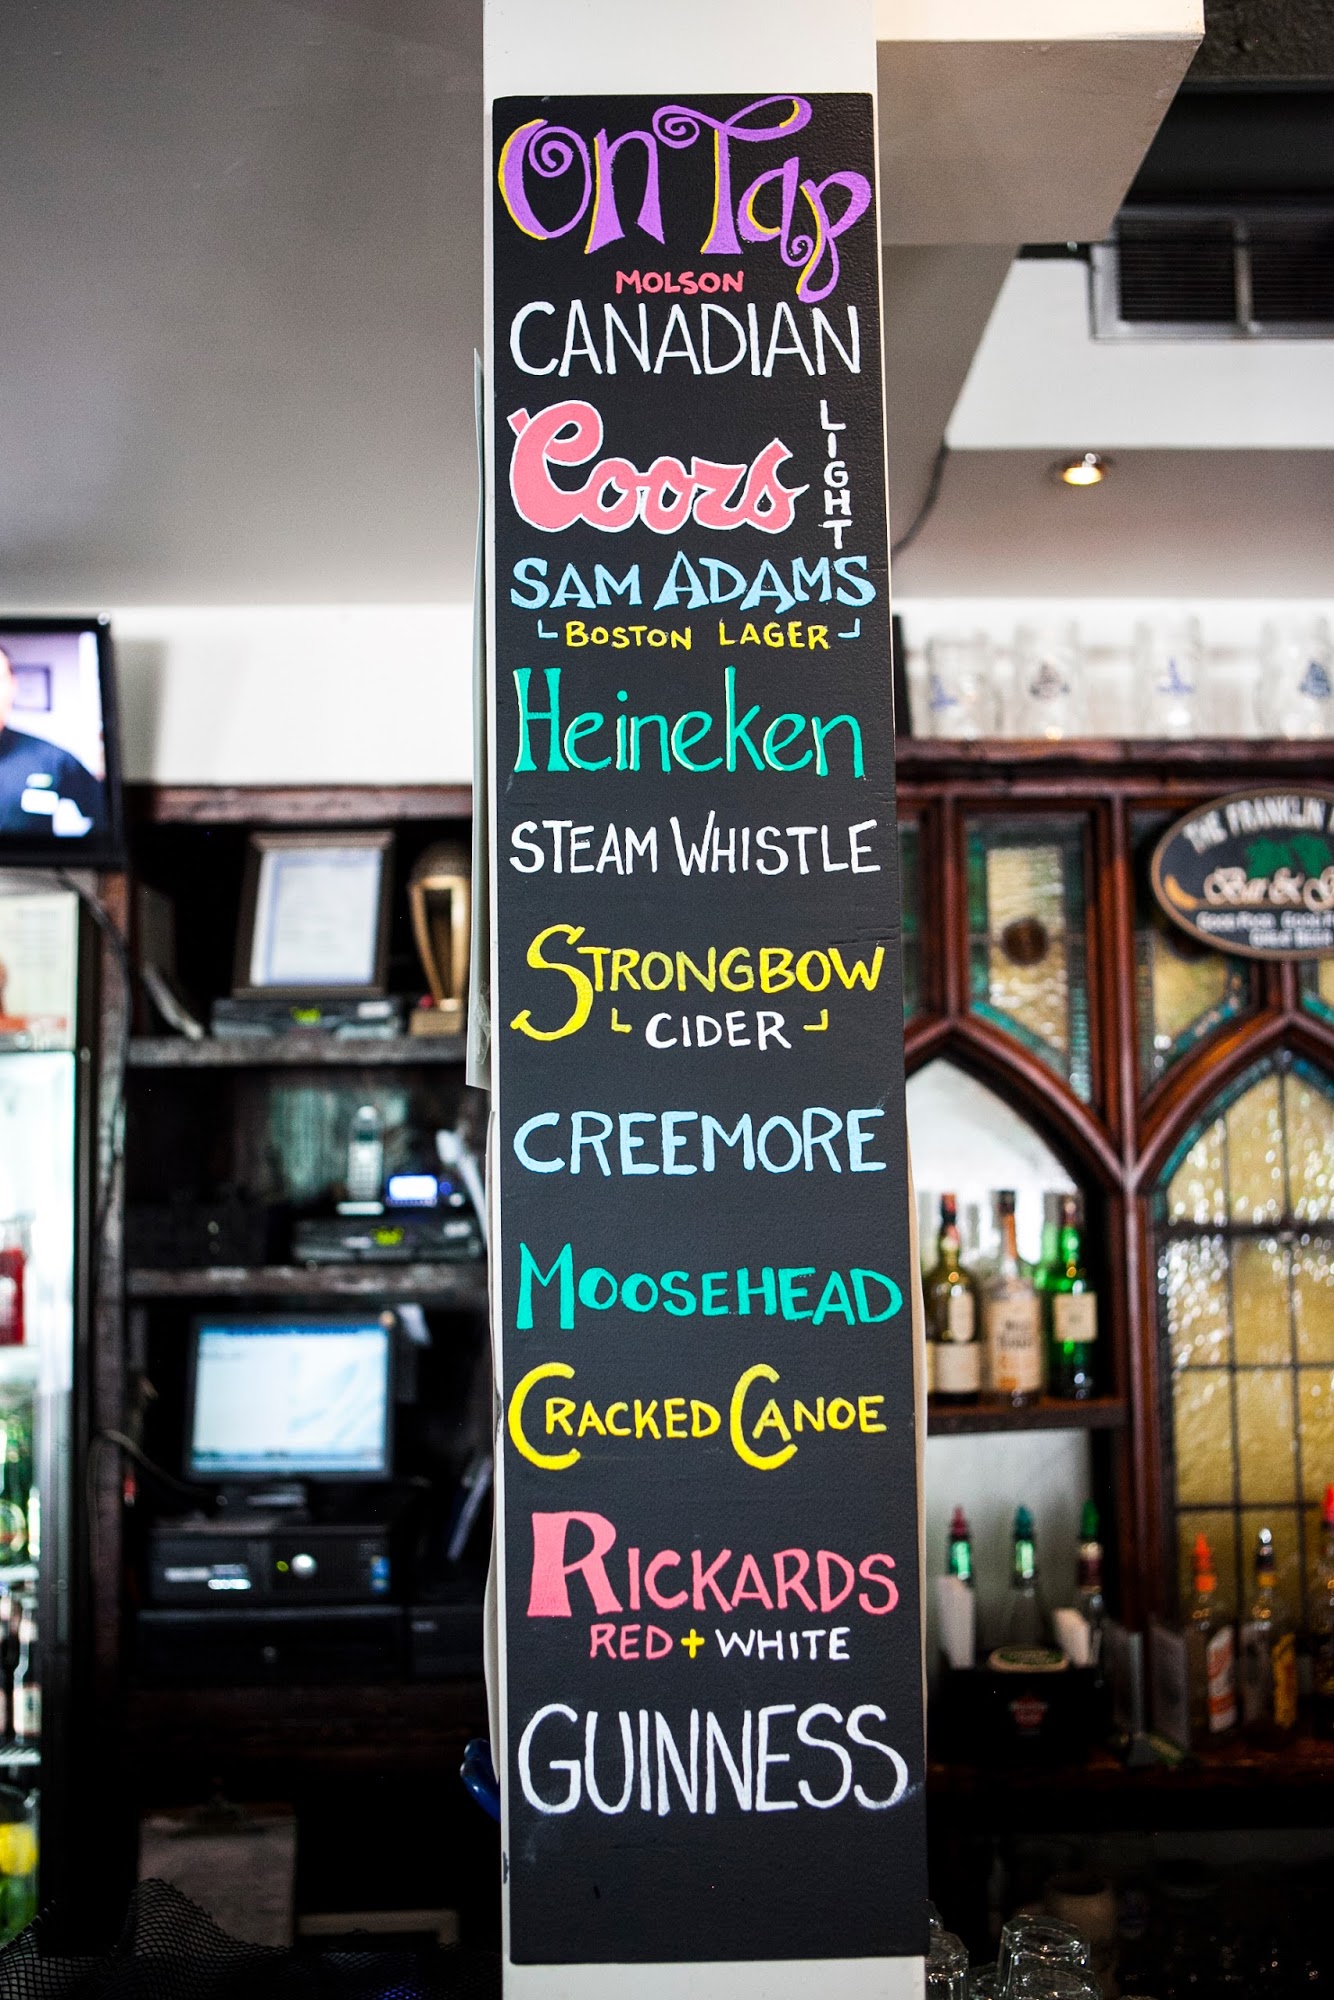 On Tap
MOLSON
CANADIAN
Coors LIGHT
SAM ADAMS
BOSTON LAGER
Heineken
STEAM WHISTLE
STRONGBOW
CIDER
CREEMORE
MOOSEHEAD
CRACKED CANOE
RICKARDS
RED + WHITE
GUINNESS
THE FRANKLIN
Bar &
GOOD FOOD GOOD
GREAT BEER